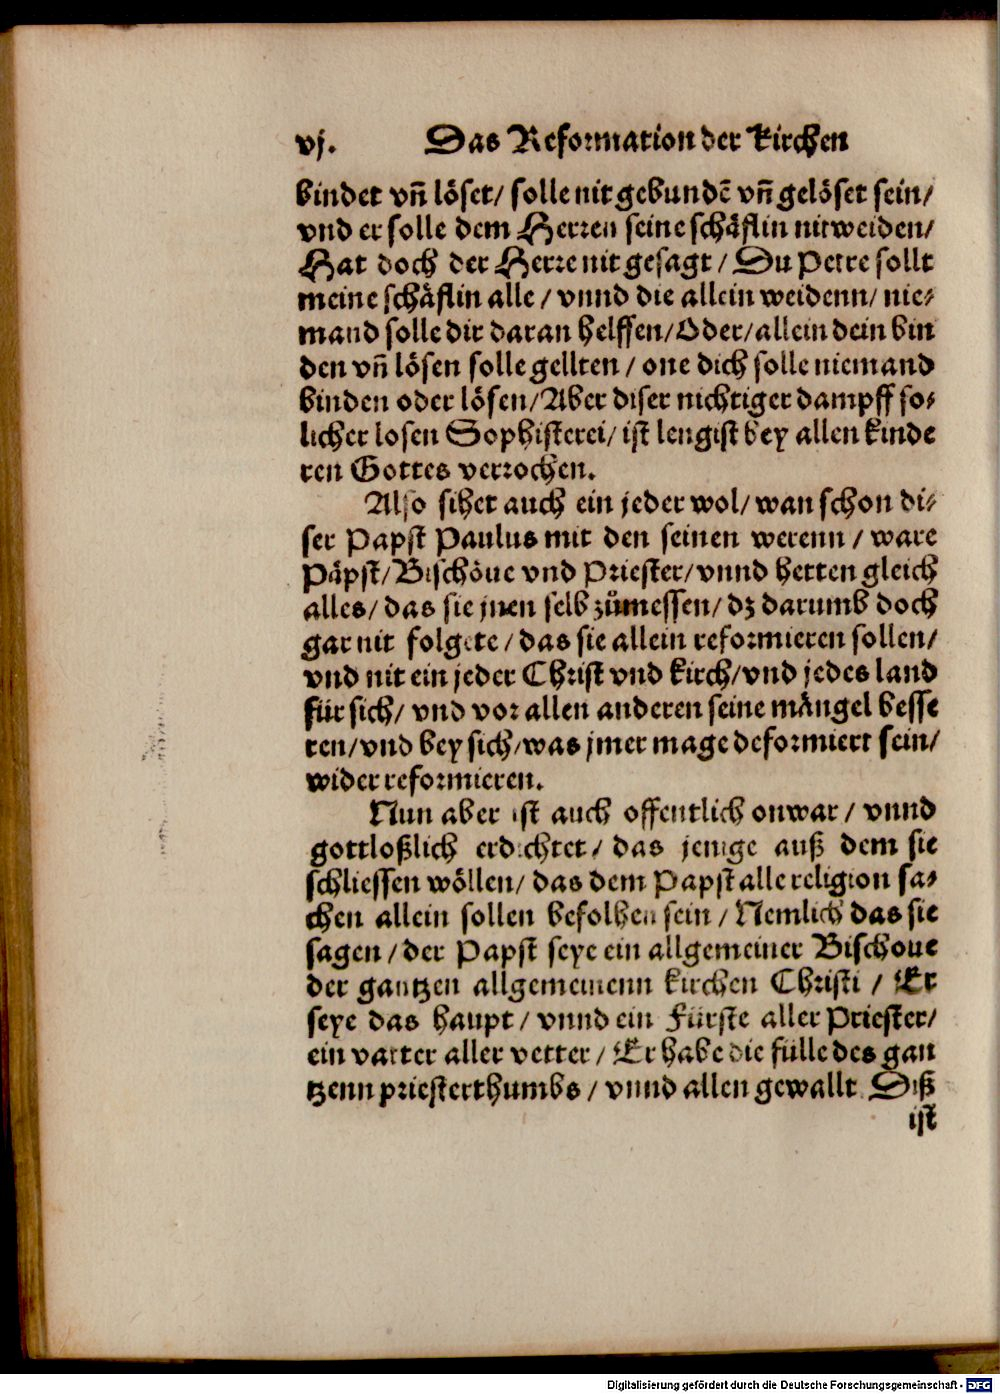 vj. Das Reformation der kirchen
bindet vn̄ löset/ solle nit gebundē vn̄ gelöset sein/
vnd er solle dem Herren seine schäflin nit weiden/
Hat doch der Herre nit gesagt / Du Petre sollt
meine schäflin alle / vnnd die allein weidenn/ nie⸗
mand solle dir daran helffen/ Oder/ allein dein bin
den vn̄ lösen solle gellten / one dich solle niemand
binden oder lösen/ Aber diser nichtiger dampff so⸗
licher losen Sophisterei/ ist lengist bey allen kinde
ren Gottes verrochen.
Also sihet auch ein jeder wol/ wan schon di⸗
ser Papst Paulus mit den seinen werenn / ware
Päpst/ Bischöue vnd Priester/ vnnd hetten gleich
alles/ das sie jnen selb zůmessen/ dz darumb doch
gar nit folgete / das sie allein reformieren sollen/
vnd nit ein jeder Christ vnd kirch/ vnd jedes land
für sich/ vnd vor allen anderen seine mängel besse
ren/ vnd bey sich/ was jmer mage deformiert sein/
wider reformieren.
Nun aber ist auch offentlich onwar / vnnd
gottloßlich erdichtet / das jenige auß dem sie
schliessen wöllen/ das dem Papst alle religion sa⸗
chen allein sollen befolhen sein / Nemlich das sie
sagen / der Papst seye ein allgemeiner Bischoue
der gantzen allgemeinenn kirchen Christi / Er
seye das haupt / vnnd ein Fürste aller Priester/
ein vatter aller vetter / Er habe die fülle des gan
tzenn priesterthumbs / vnnd allen gewallt. Diß
ist
Digitalisierung gefördert durch die Deutsche Forschungsgemeinschaft - DFG